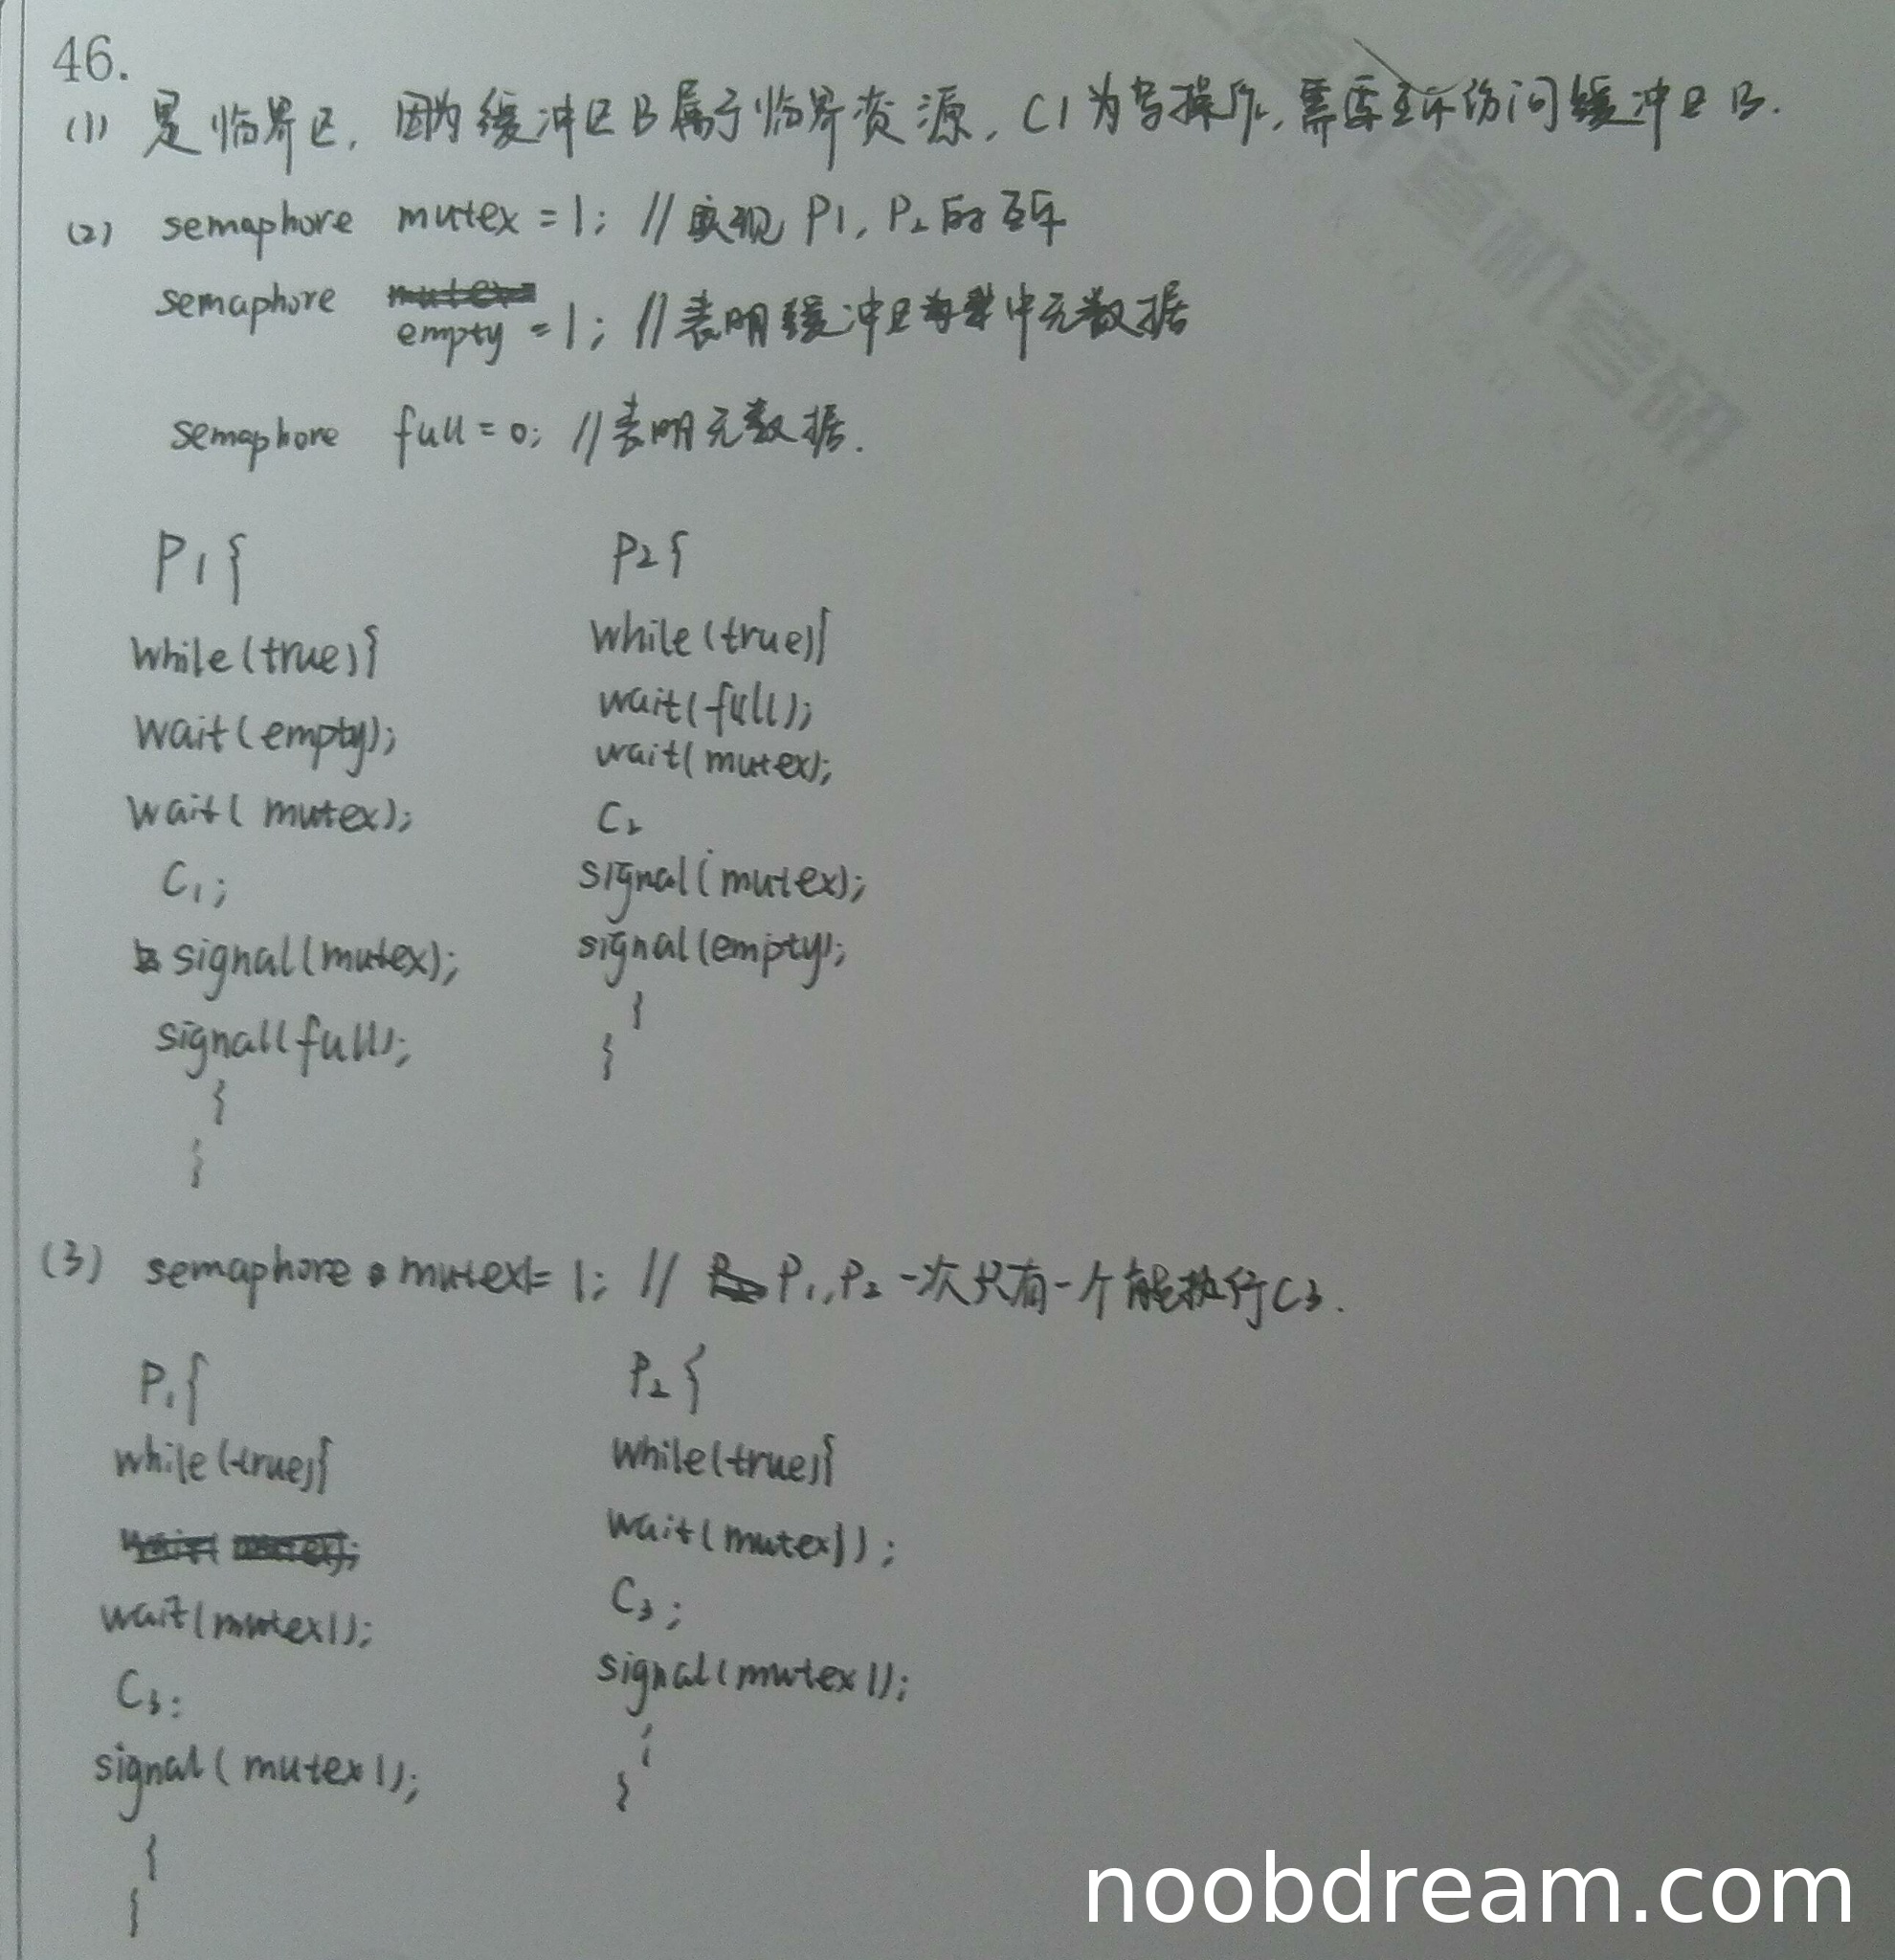 46.
(1) 是临界区, 因为缓冲区B属于临界资源, C1为写操作, 需要互斥访问缓冲区B.
(2) semaphore mutex = 1; // 实现 P1, P2的互斥
semaphore
empty = 1; // 表明缓冲区中无数据
semaphore full = 0; // 表明无数据.
P1 {
while(true){
wait(empty);
wait( mutex);
C1;
signal(mutex);
signal(full);
}
}
P2 {
while(true){
wait(full);
wait(mutex);
C2
signal(mutex);
signal(empty);
}
}
(3) semaphore mutex1= 1; // P1,P2 一次只有一个能执行C3.
P1{
while(true){
wait(mutex1);
C3;
signal( mutex1);
}
}
P2 {
while(true){
wait(mutex1);
C3;
signal(mutex1);
}
}
noobdream.com